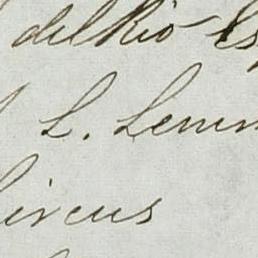 delRio Es
L. Lemm
Circus